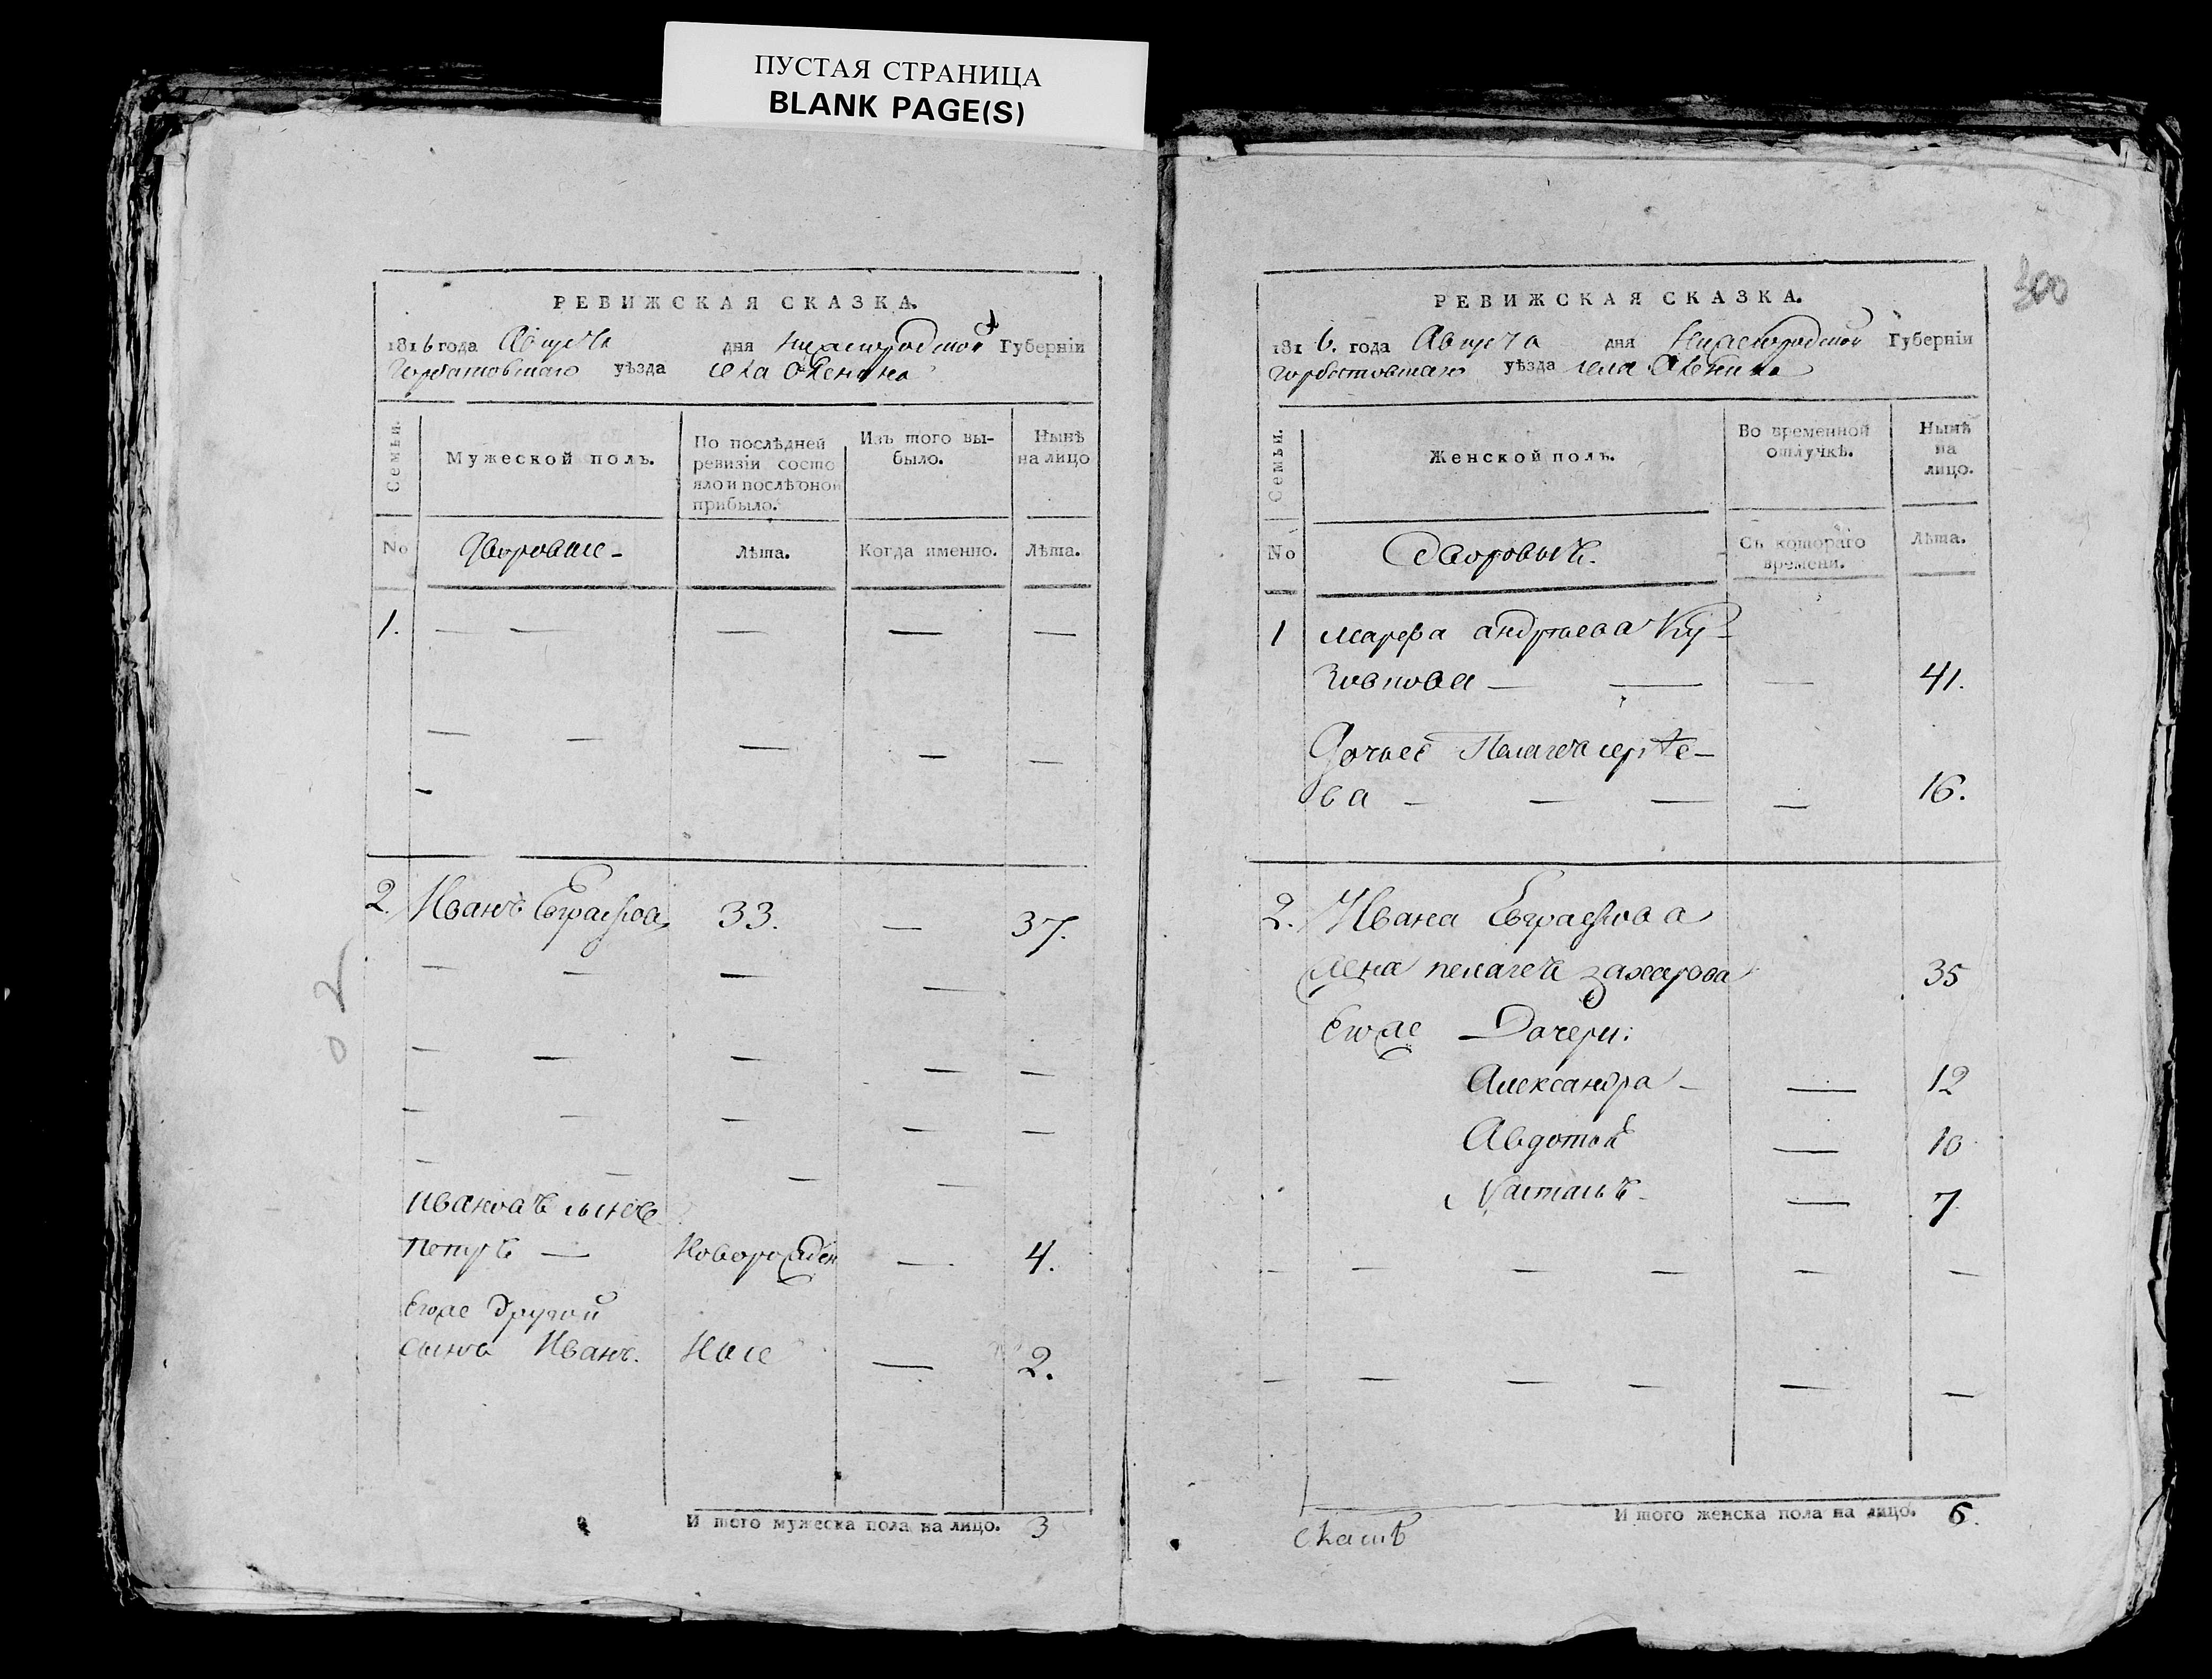 ПУСТАЯ СТРАНИЦА
BLANK PAGE(S)
РЕВИЖСКАЯ СКАЗКА.
1816 года Августа дня Нижегородской Губерніи
Горбатовскаго уѣзда села
Семьи.
Мужеской полъ.
По послѣдней ревизіи состояло и послѣ оной прибыло.
Изъ того выбыло.
Нынѣ на лицо
No
Дворовые -
Лѣта.
Когда именно.
Лѣта.
1. — — — — —
— — — — —
-
2. Иванъ Евграфов 33. — 37.
— — — —
— — — — —
— — — — —
— — — —
Ивановъ сынъ
Петръ — Новорожден — 4.
Егоже другой
сынъ Иванъ. — 2.
И того мужеска пола на лицо. 3
300
РЕВИЖСКАЯ СКАЗКА.
1816. года Августа дня Нижегородской Губерніи
Горбатовскаго уѣзда села
Семьи.
Женской полъ.
Во временной отлучкѣ.
Нынѣ на лицо.
No
Дворовыя.
Съ котораго времени.
Лѣта.
1 Марфа андреева
— — — 41.
Дочь ее Пелагея сергѣе-
ва — — — — 16.
2. Ивана Евграфова
жена пелагея захарова 35
Егоже Дочери:
Александра - — 12
Авдотья — 10
Настасья - — 7
— — — — — —
— — — — — —
И того женска пола на лицо. 6.